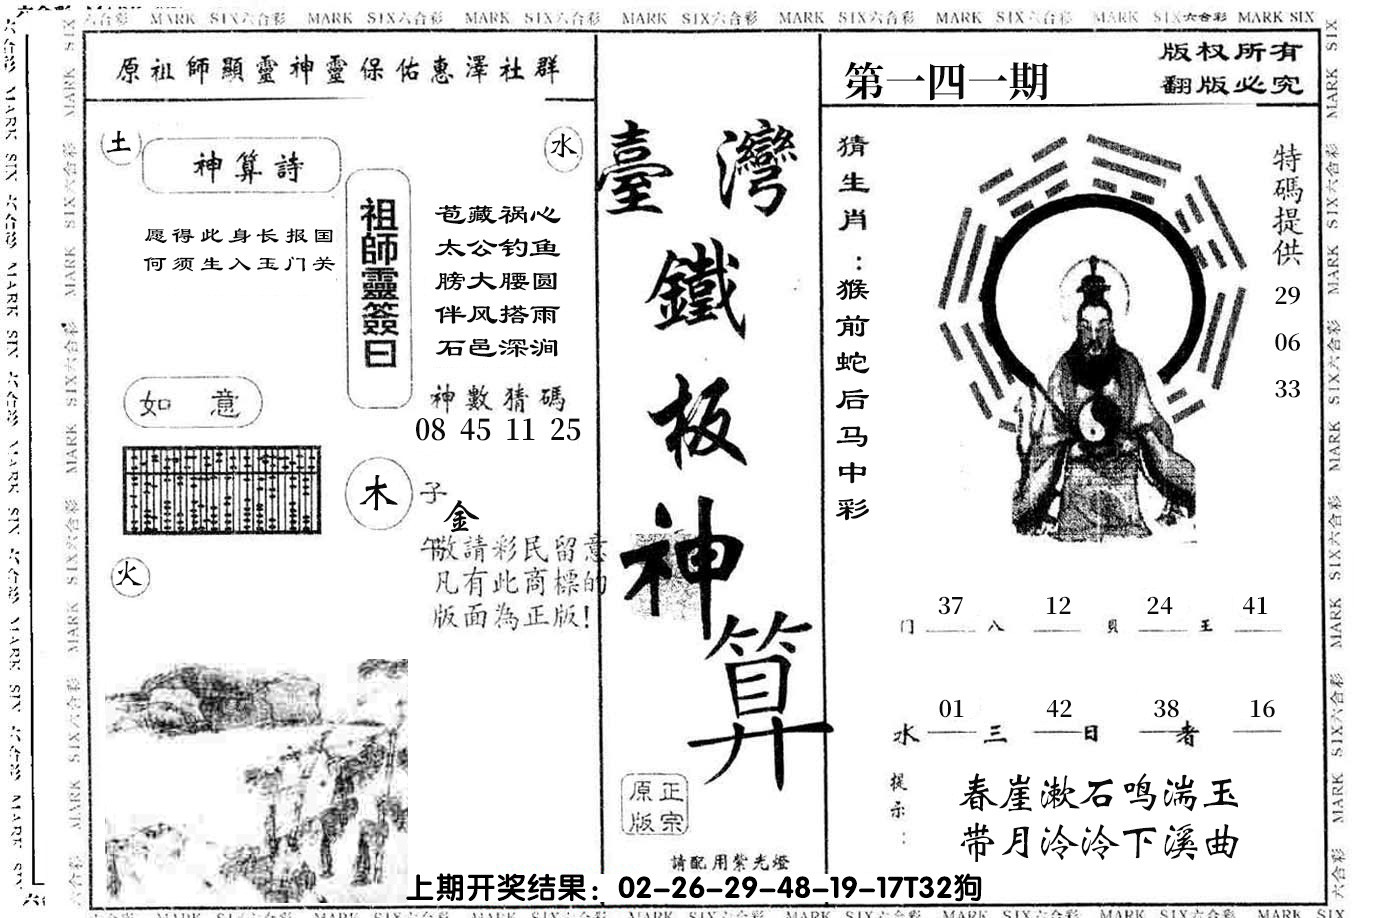 MARK SIX六合彩 MARK SIX六合彩 MARK SIX六合彩 MARK SIX六合彩 MARK SIX六合彩 MARK SIX六合彩 MARK SIX六合彩 MARK SIX
原祖師顯靈神靈保佑惠澤社群
土
神算詩
水
愿得此身长报国
何须生入玉门关
祖師靈簽曰
苞藏祸心
太公钓鱼
膀大腰圆
伴风搭雨
石邑深涧
神數猜碼
08 45 11 25
如意
木
子
金
午
敬請彩民留意
凡有此商標的
版面為正版!
火
臺灣
鐵
板
神
算
正宗
原版
請配用紫光燈
第一四一期
版权所有
翻版必究
猜生肖：猴前蛇后马中彩
特碼提供
29
06
33
37 12 24 41
门 八 貝 王
01 42 38 16
水 三 日 者
提示：
春崖漱石鸣湍玉
带月泠泠下溪曲
上期开奖结果：02-26-29-48-19-17T32狗